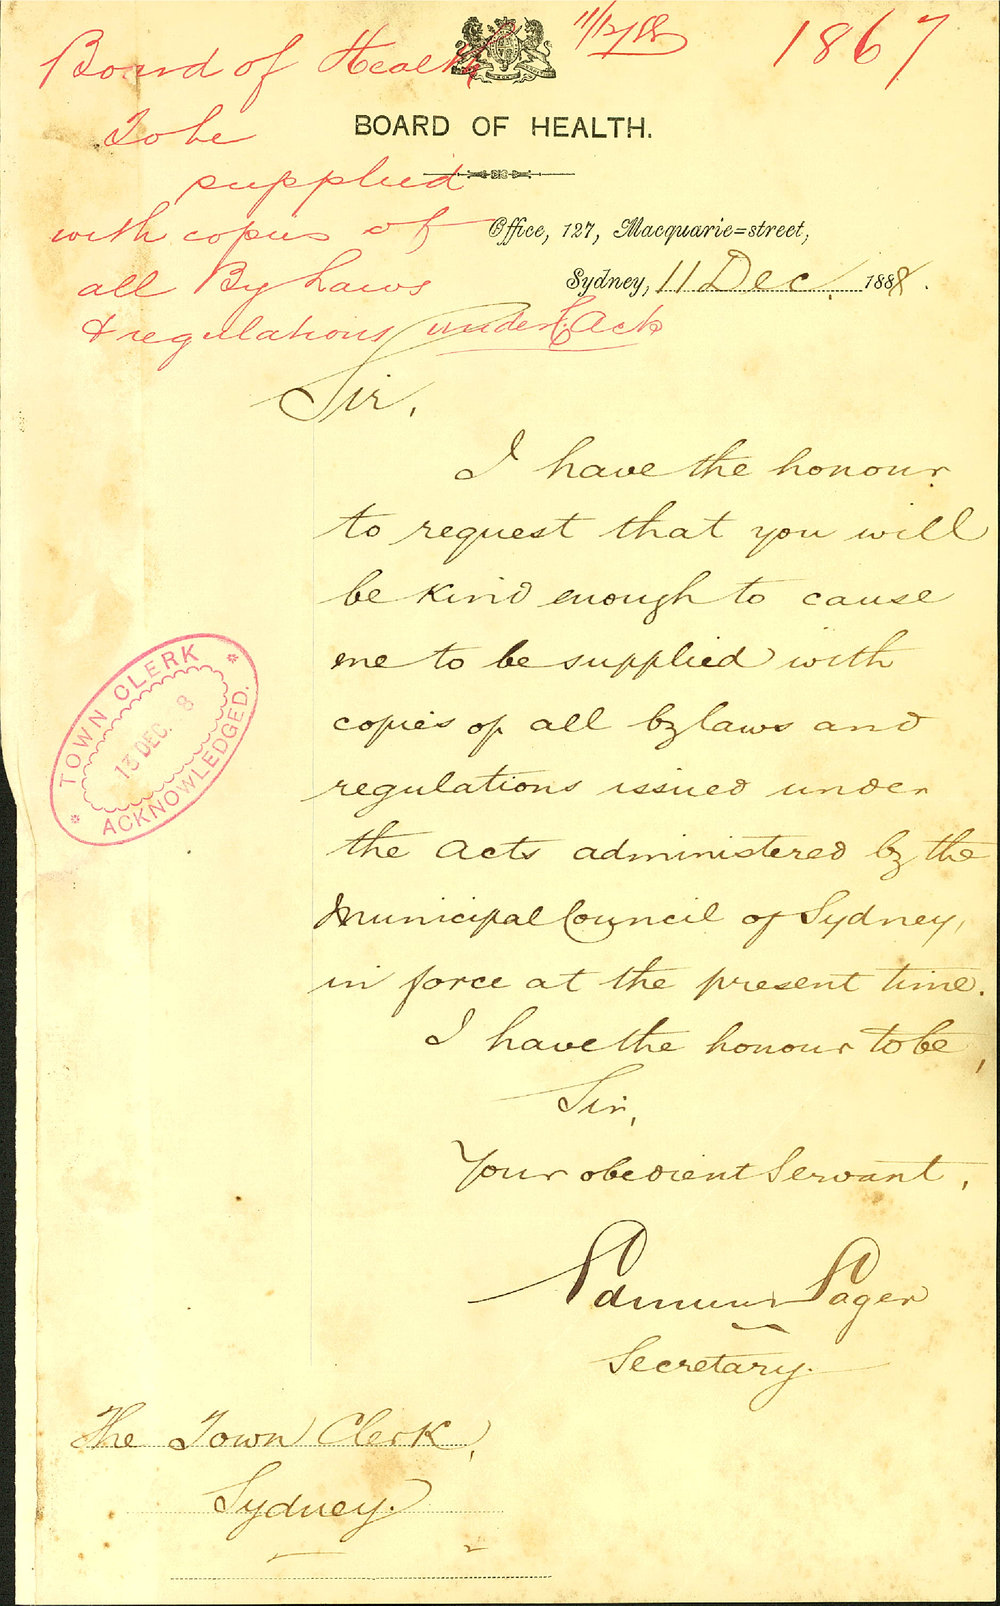 Board of Health 11/12/88 1867
To be
supplied
with copies of
all By Laws
& regulations under Acts
BOARD OF HEALTH.
Office, 127, Macquarie=street,
Sydney, 11 Dec. 1888.
Sir,
I have the honour
to request that you will
be kind enough to cause
me to be supplied with
copies of all bylaws and
regulations issued under
the Acts administered by the
Municipal Council of Sydney,
in force at the present time.
I have the honour to be,
Sir,
Your obedient Servant,
Edmund Sager
Secretary.
TOWN CLERK
13 DEC. 8
ACKNOWLEDGED.
The Town Clerk,
Sydney.